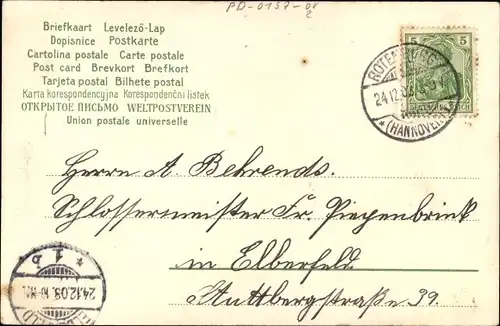 PD-0157-08
2
Briefkaart Levelező-Lap
Dopisnice Postkarte
Cartolina postale Carte postale
Post card Brevkort Brefkort
Tarjeta postal Bilhete postal
Karta korespondencyjna Korespondenční listek
ОТКРЫТОЕ ПИСЬМО WELTPOSTVEREIN
Union postale universelle
5 5
24.12.03
*(HANNOVER)
Herrn A. Behrends.
Schlossermeister Fr. Piepenbrink
in Elberfeld.
Huttbergstrasse 39.
* 1 *
b
24.12.03.